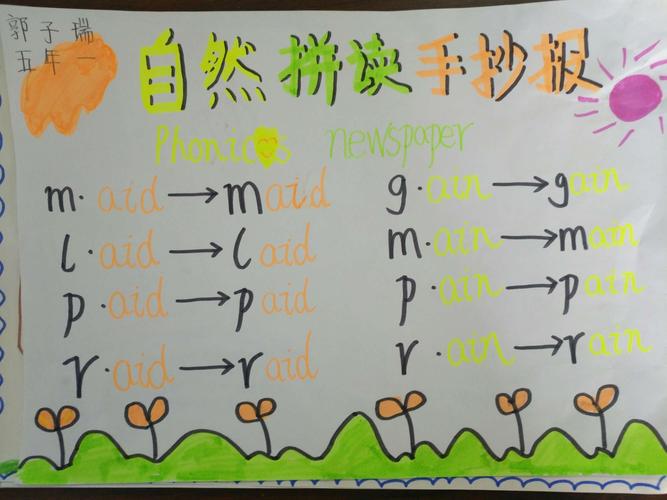 郭子瑞
五年一
自然拼读手抄报
Phonics newspaper
m·aid→maid
l·aid→laid
p·aid→paid
r·aid→raid
g·ain→gain
m·ain→main
p·ain→pain
r·ain→rain